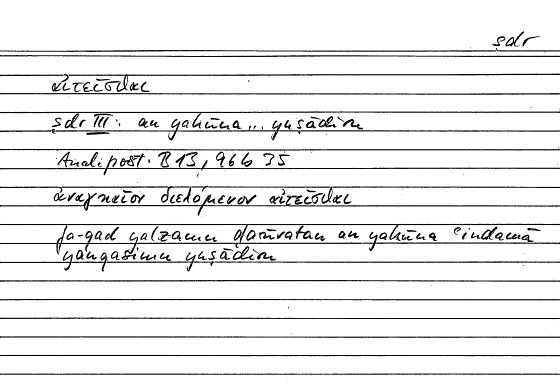 ṣdr
αἰτεῖσθαι
ṣdr III: an yakūna... yuṣādiru
Anal. post. B 13, 96b 35
ἀναγκαῖον διελόμενον αἰτεῖσθαι
fa-qad yalzamu ḍarūratan an yakūna ʿindamā
yanqasimu yuṣādiru